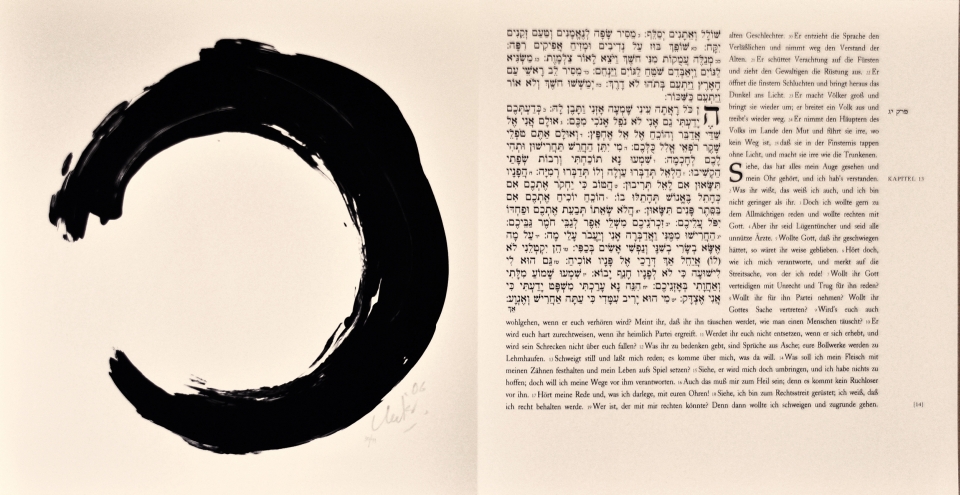 שׁוֹלָל וְאֵתָנִים יְסַלֵּף׃ מֵסִיר שָׂפָה לְנֶאֱמָנִים וְטַעַם זְקֵנִים
יִקָּח׃ שׁוֹפֵךְ בּוּז עַל נְדִיבִים וּמְזִיחַ אֲפִיקִים רִפָּה׃
מְגַלֶּה עֲמֻקוֹת מִנִּי חֹשֶׁךְ וַיֹּצֵא לָאוֹר צַלְמָוֶת׃ מַשְׂגִּיא
לַגּוֹיִם וַיְאַבְּדֵם שֹׁטֵחַ לַגּוֹיִם וַיַּנְחֵם׃ מֵסִיר לֵב רָאשֵׁי עַם
הָאָרֶץ וַיַּתְעֵם בְּתֹהוּ לֹא דָרֶךְ׃ יְמַשְׁשׁוּ חֹשֶׁךְ וְלֹא אוֹר
וַיַּתְעֵם כַּשִּׁכּוֹר׃
הֶן כֹּל רָאֲתָה עֵינִי שָׁמְעָה אָזְנִי וַתָּבֶן לָהּ׃ כְּדַעְתְּכֶם
יָדַעְתִּי גַם אָנִי לֹא נֹפֵל אָנֹכִי מִכֶּם׃ אוּלָם אֲנִי אֶל
שַׁדַּי אֲדַבֵּר וְהוֹכֵחַ אֶל אֵל אֶחְפָּץ׃ וְאוּלָם אַתֶּם טֹפְלֵי
שָׁקֶר רֹפְאֵי אֱלִל כֻּלְּכֶם׃ מִי יִתֵּן הַחֲרֵשׁ תַּחֲרִישׁוּן וּתְהִי
לָכֶם לְחָכְמָה׃ שִׁמְעוּ נָא תוֹכַחְתִּי וְרִבוֹת שְׂפָתַי
הַקְשִׁיבוּ׃ הַלְאֵל תְּדַבְּרוּ עַוְלָה וְלוֹ תְּדַבְּרוּ רְמִיָּה׃ הֲפָנָיו
תִּשָּׂאוּן אִם לָאֵל תְּרִיבוּן׃ הֲטוֹב כִּי יַחְקֹר אֶתְכֶם אִם
כְּהָתֵל בֶּאֱנוֹשׁ תְּהָתֵלּוּ בוֹ׃ הוֹכֵחַ יוֹכִיחַ אֶתְכֶם אִם
בַּסֵּתֶר פָּנִים תִּשָּׂאוּן׃ הֲלֹא שְׂאֵתוֹ תְּבַעֵת אֶתְכֶם וּפַחְדּוֹ
יִפֹּל עֲלֵיכֶם׃ זִכְרֹנֵיכֶם מִשְׁלֵי אֵפֶר לְגַבֵּי חֹמֶר גַּבֵּיכֶם׃
הַחֲרִישׁוּ מִמֶּנִּי וַאֲדַבְּרָה אָנִי וְיַעֲבֹר עָלַי מָה׃ עַל מָה
אֶשָּׂא בְשָׂרִי בְשִׁנָּי וְנַפְשִׁי אָשִׂים בְּכַפִּי׃ הֵן יִקְטְלֵנִי לֹא
(לוֹ) אֲיַחֵל אַךְ דְּרָכַי אֶל פָּנָיו אוֹכִיחַ׃ גַּם הוּא לִי
לִישׁוּעָה כִּי לֹא לְפָנָיו חָנֵף יָבוֹא׃ שִׁמְעוּ שָׁמוֹעַ מִלָּתִי
וְאַחֲוָתִי בְּאָזְנֵיכֶם׃ הִנֵּה נָא עָרַכְתִּי מִשְׁפָּט יָדַעְתִּי כִּי
אֲנִי אֶצְדָּק׃ מִי הוּא יָרִיב עִמָּדִי כִּי עַתָּה אַחֲרִישׁ וְאֶגְוָע׃
אַךְ
alten Geschlechter. Er entzieht die Sprache den
Verläßlichen und nimmt weg den Verstand der
Alten. Er schüttet Verachtung auf die Fürsten
und zieht den Gewaltigen die Rüstung aus. Er
öffnet die finstern Schluchten und bringt heraus das
Dunkel ans Licht. Er macht Völker groß und
bringt sie wieder um; er breitet ein Volk aus und
treibt's wieder weg. Er nimmt den Häuptern des
Volks im Lande den Mut und führt sie irre, wo
kein Weg ist, daß sie in der Finsternis tappen
ohne Licht, und macht sie irre wie die Trunkenen.
פרק יג
Siehe, das hat alles mein Auge gesehen und
mein Ohr gehört, und ich hab's verstanden.
KAPITEL 13
Was ihr wißt, das weiß ich auch, und ich bin
nicht geringer als ihr. Doch ich wollte gern zu
dem Allmächtigen reden und wollte rechten mit
Gott. Aber ihr seid Lügentüncher und seid alle
unnütze Ärzte. Wollte Gott, daß ihr geschwiegen
hättet, so wäret ihr weise geblieben. Hört doch,
wie ich mich verantworte, und merkt auf die
Streitsache, von der ich rede! Wollt ihr Gott
verteidigen mit Unrecht und Trug für ihn reden?
Wollt ihr für ihn Partei nehmen? Wollt ihr
Gottes Sache vertreten? Wird's euch auch
wohlgehen, wenn er euch verhören wird? Meint ihr, daß ihr ihn täuschen werdet, wie man einen Menschen täuscht? Er
wird euch hart zurechtweisen, wenn ihr heimlich Partei ergreift. Werdet ihr euch nicht entsetzen, wenn er sich erhebt, und
wird sein Schrecken nicht über euch fallen? Was ihr zu bedenken gebt, sind Sprüche aus Asche; eure Bollwerke werden zu
Lehmhaufen. Schweigt still und laßt mich reden; es komme über mich, was da will. Was soll ich mein Fleisch mit
meinen Zähnen festhalten und mein Leben aufs Spiel setzen? Siehe, er wird mich doch umbringen, und ich habe nichts zu
hoffen; doch will ich meine Wege vor ihm verantworten. Auch das muß mir zum Heil sein; denn es kommt kein Ruchloser
vor ihn. Hört meine Rede und, was ich darlege, mit euren Ohren! Siehe, ich bin zum Rechtsstreit gerüstet; ich weiß, daß
ich recht behalten werde. Wer ist, der mit mir rechten könnte? Denn dann wollte ich schweigen und zugrunde gehen.
[54]